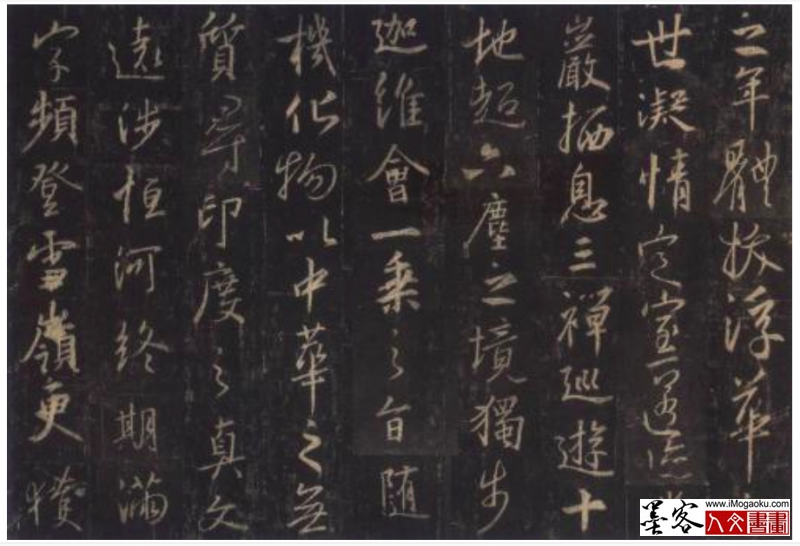 之年體拔浮華
世凝情定室匿跡
巖栖息三禪巡遊十
地超六塵之境獨步
迦維會一乘之旨随
機化物以中華之無
質尋印度之真文
遠涉恒河終期滿
字頻登雪嶺更獲
www.iMogaoku.com
墨客
人文書畫